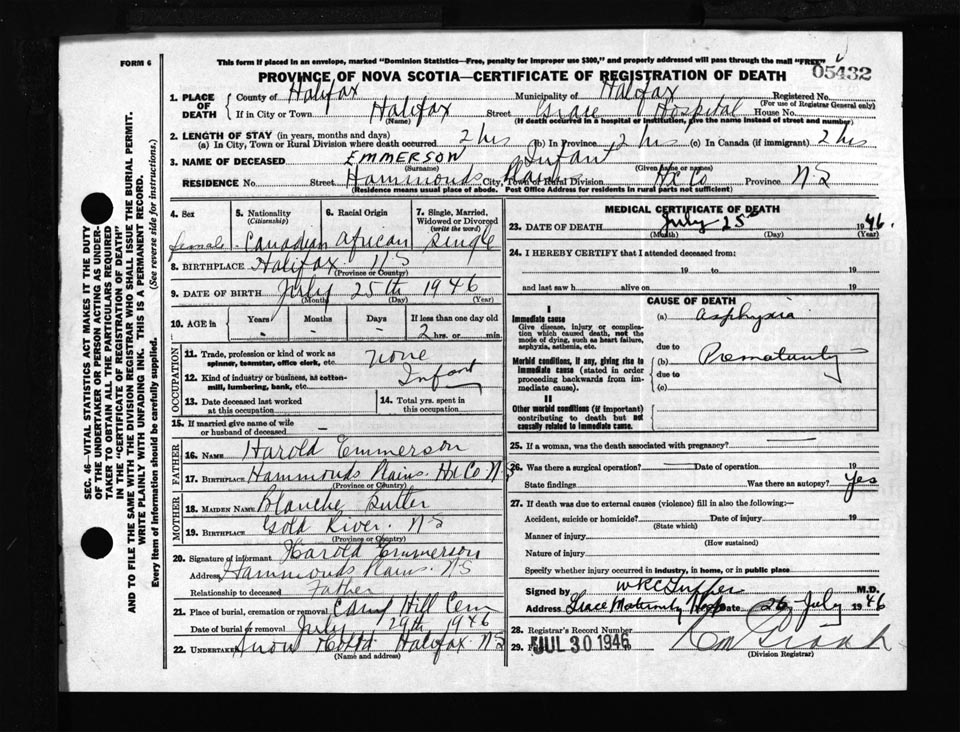 FORM 6
This form if placed in an envelope, marked "Dominion Statistics—Free, penalty for improper use $300," and properly addressed will pass through the mail "FREE"
05432
PROVINCE OF NOVA SCOTIA—CERTIFICATE OF REGISTRATION OF DEATH
1. PLACE OF DEATH
County of Halifax Municipality of Halifax Registered No.
(For use of Registrar General only)
If in City or Town Halifax Street Grace Hospital House No.
(Name) (If death occurred in a hospital or institution, give the name instead of street and number)
2. LENGTH OF STAY (in years, months and days)
(a) In City, Town or Rural Division where death occurred 2 hrs (b) In Province 2 hrs (c) In Canada (if immigrant) 2 hrs
3. NAME OF DECEASED EMMERSON, Infant
(Surname) (Given name or names)
RESIDENCE No. Street Hammonds Plains City, Town or Rural Division Hx Co Province N S
(Residence means usual place of abode. Post Office Address for residents in rural parts not sufficient)
SEC. 46—VITAL STATISTICS ACT MAKES IT THE DUTY
OF THE UNDERTAKER OR PERSON ACTING AS UNDER-
TAKER TO OBTAIN ALL THE PARTICULARS REQUIRED
IN THE "CERTIFICATE OF REGISTRATION OF DEATH"
AND TO FILE THE SAME WITH THE DIVISION REGISTRAR WHO SHALL ISSUE THE BURIAL PERMIT.
WRITE PLAINLY WITH UNFADING INK. THIS IS A PERMANENT RECORD.
Every item of information should be carefully supplied. (See reverse side for instructions.)
4. Sex 5. Nationality (Citizenship) 6. Racial Origin 7. Single, Married, Widowed or Divorced (write the word)
female Canadian African Single
8. BIRTHPLACE Halifax N S
(Province or Country)
9. DATE OF BIRTH July 25th 1946
(Month) (Day) (Year)
10. AGE in Years Months Days If less than one day old
- - - 2 hrs. or min.
OCCUPATION
11. Trade, profession or kind of work as spinner, teamster, office clerk, etc. none
12. Kind of industry or business, as cotton-mill, lumbering, bank, etc. Infant
13. Date deceased last worked at this occupation
14. Total yrs. spent in this occupation
15. If married give name of wife or husband of deceased –
FATHER
16. Name Harold Emmerson
17. Birthplace Hammonds Plains. Hx Co N S
(Province or Country)
MOTHER
18. Maiden Name Blanche Butler
19. Birthplace Gold River. N S
(Province or Country)
20. Signature of informant Harold Emmerson
Address Hammonds Plains. N S
Relationship to deceased Father
21. Place of burial, cremation or removal Camp Hill Cem
Date of burial or removal July 29th 1946
22. Undertaker Snow Halifax N S
(Name and address)
MEDICAL CERTIFICATE OF DEATH
23. DATE OF DEATH July 25th 1946
(Month) (Day) (Year)
24. I HEREBY CERTIFY that I attended deceased from:
19 to 19
and last saw h alive on 19
CAUSE OF DEATH
I
Immediate cause
Give disease, injury or complication which caused death, not the mode of dying, such as heart failure, asphyxia, asthenia, etc.
(a) Asphyxia
due to
Morbid conditions, if any, giving rise to immediate cause (stated in order proceeding backwards from immediate cause).
(b) Prematurity
due to
(c)
II
Other morbid conditions (if important) contributing to death but not causally related to immediate cause.
25. If a woman, was the death associated with pregnancy?
26. Was there a surgical operation? Date of operation 19
State findings Was there an autopsy? Yes
27. If death was due to external causes (violence) fill in also the following:—
Accident, suicide or homicide? Date of injury 19
(State which)
Manner of injury
(How sustained)
Nature of injury
Specify whether injury occurred in industry, in home, or in public place
Signed by W R C Tupper M.D.
Address Grace Maternity Hosp Date 26 July 1946
28. Registrar's Record Number
29. JUL 30 1946
(Division Registrar)